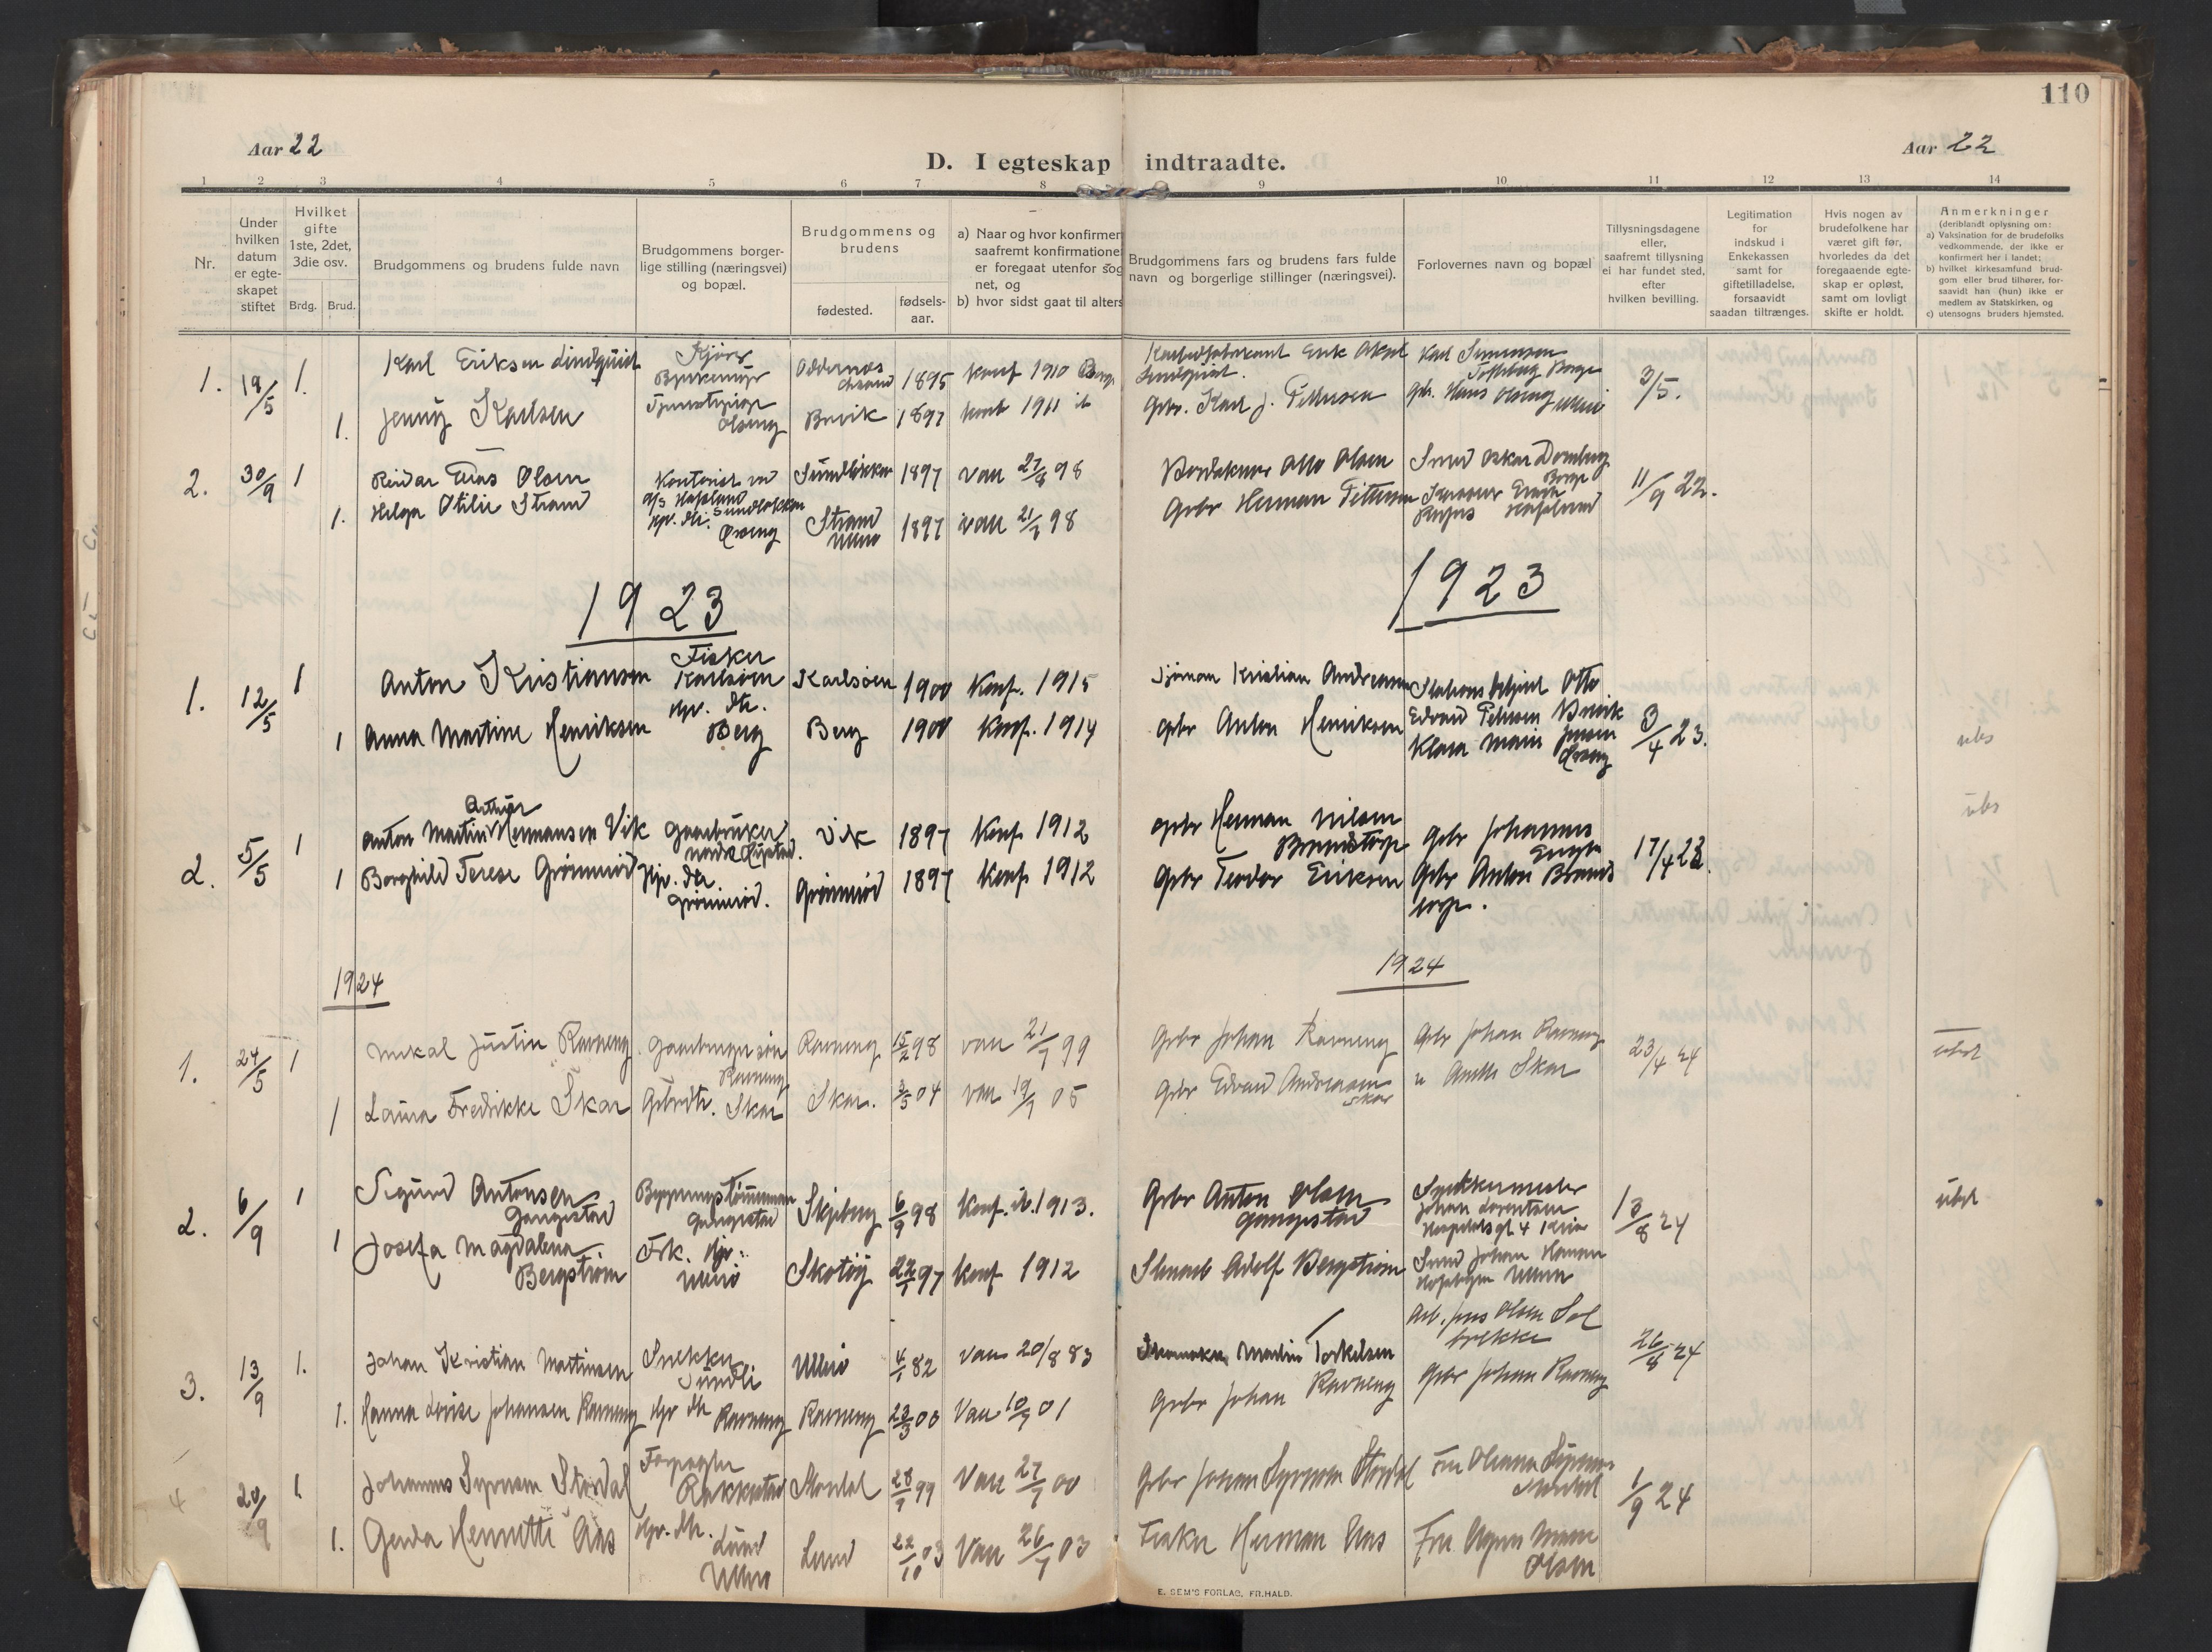 110
Aar 22
Aar 22
D. I egteskap indtraadte.
1 2 3 4 5 6 7 8 9 10 11 12 13 14
Nr.
Under
hvilken
datum
er egte-
skapet
stiftet
Hvilket
gifte
1ste, 2det,
3die osv.
Brdg. Brud.
Brudgommens og brudens fulde navn
Brudgommens borger-
lige stilling (næringsvei)
og bopæl.
Brudgommens og
brudens
fødested.
fødsels-
aar.
a) Naar og hvor konfirmer
saafremt konfirmatione
er foregaat utenfor sog
net, og
b) hvor sidst gaat til alters
Brudgommens fars og brudens fars fulde
navn og borgerlige stillinger (næringsvei).
Forlovernes navn og bopæl
Tillysningsdagene
eller,
saafremt tillysning
ei har fundet sted,
efter
hvilken bevilling.
Legitimation
for
indskud i
Enkekassen
samt for
giftetilladelse,
forsaavidt
saadan tiltrænges.
Hvis nogen av
brudefolkene har
været gift før,
hvorledes da det
foregaaende egte-
skap er opløst,
samt om lovligt
skifte er holdt.
Anmerkninger
(deriblandt oplysning om:
a) Vaksination for de brudefolks
vedkommende, der ikke er
konfirmeri her i landet;
b) hvilket kirkesamfund brud-
gom eller brud tilhører, for-
saavidt han (hun) ikke er
medlem av Statskirken, og
c) utensogns bruders hjemsted.
1. 19/5 1. Karl Eriksen Lindquist 1895 Konf 1910 Erik Aksel Lindquist. Karl Simensen 3/5.
1. Jenny Karlsen Brevik 1897 Konf 1911 Gbr. Karl J. Pettersen Hans
2. 30/9 1 Reidar Elias Olsen Kontorist ved A/S Hafslund Sundløkken 1897 vac 27/8 98 Otto Olsen Smed Oskar Borge 11/9 22.
1. Helga Otilie Strand Hjv. dtr. Strand Ullerø 1897 vac 21/7 98 Gbr Herman Pettersen Hafslund
1923
1923
1. 12/5 1 Anton Kristiansen Fisker Karlsøen Karlsøen 1900 Konf. 1915 Kristian Andreasen Otto Edvard Petersen Brevik 3/4 23.
1 Anna Martine Henriksen Hjv. dtr. Berg Berg 1900 Konf. 1914 Gbr Anton Henriksen Klara Marie Jensen
ubs
2. 5/5 1 Anton Martin Arthur Hermansen Vik Gaardbruker Vik 1897 Konf 1912 Gbr Herman Nilsen Brandstorp Gbr Johannes 17/4 23.
1 Borghild Terese Grønnerød Hjv. dtr. Grønnerød. Grønnerød 1897 Konf 1912 Gbr Teodor Eriksen Gbr Anton Brands
torp.
ubs
1924
1924
1. 24/5 1 Mikal Justin Ravneng Gaardbruger søn Ravneng Ravneng 15/2 98 vac 21/7 99 Gbr Johan Ravneng Gbr Johan Ravneng 23/4 24
1 Laura Fredrikke Skar Gbrdtr. Skar Skar. 3/5 04 vac 19/7 05 Gbr Edvard Andreassen Skar Skar
ubet
2. 6/9 1 Sigurd Antonsen Gangestad Bygningstømmerman Gangestad Skjeberg 6/9 98 Konf. ib. 1913. Gbr Anton Olsen Gangestad Snekkermester Johan Lorentsen 13/8 24
1 Josefa Magdalena Bergstrøm Frk. Hjv. Ullerø Skotøy 22/1 97 Konf 1912 Adolf Bergstrøm Smed Johan Hansen
ubet
3. 13/9 1. Johan Kristian Martinsen Snekker Sundli Ullerø 4/1 82 Vac 20/8 83 Martin Torkelsen Arb. Jens Olsen Sol
brekke 26/8 24
1. Hanna Lovise Johansen Ravneng Hjv dtr Ravneng Ravneng 23/3 00 Vac 10/9 01 Gbr Johan Ravneng Gbr Johan Ravneng
4 20/9 1. Johannes Syversen Stordal Forpagter Rakkestad Stordal 28/7 99 Vac 27/7 00 Gbr Johan Syversen Stordal Fru Stordal 1/9 24
1. Gerda Henriette Aas Hjv. dtr. Lund Ullerø Lund 22/10 03 Vac 26/7 03 Fisker Herman Aas Fru Agnes Marie Olsen
E. SEM'S FORLAG, FR.HALD.